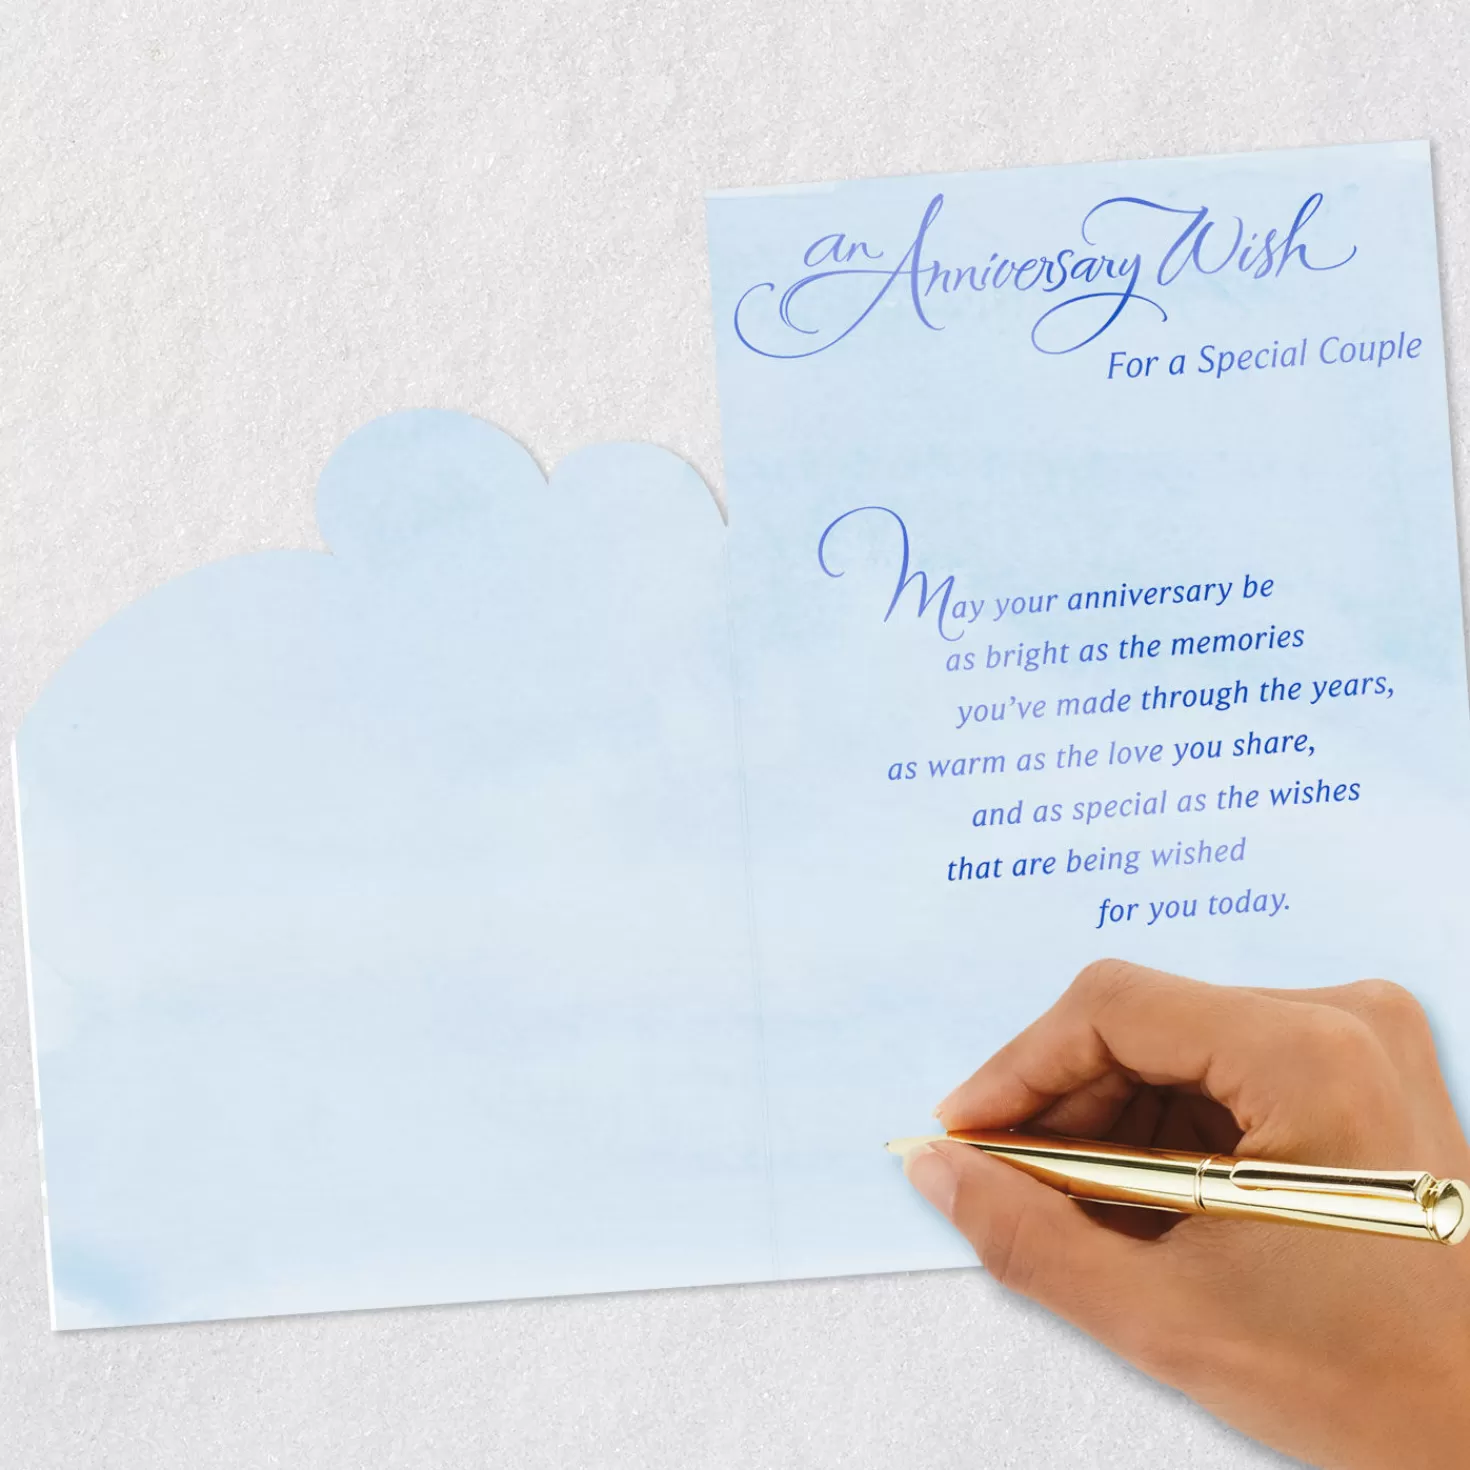 an Anniversary Wish
For a Special Couple
May your anniversary be
as bright as the memories
you've made through the years,
as warm as the love you share,
and as special as the wishes
that are being wished
for you today.